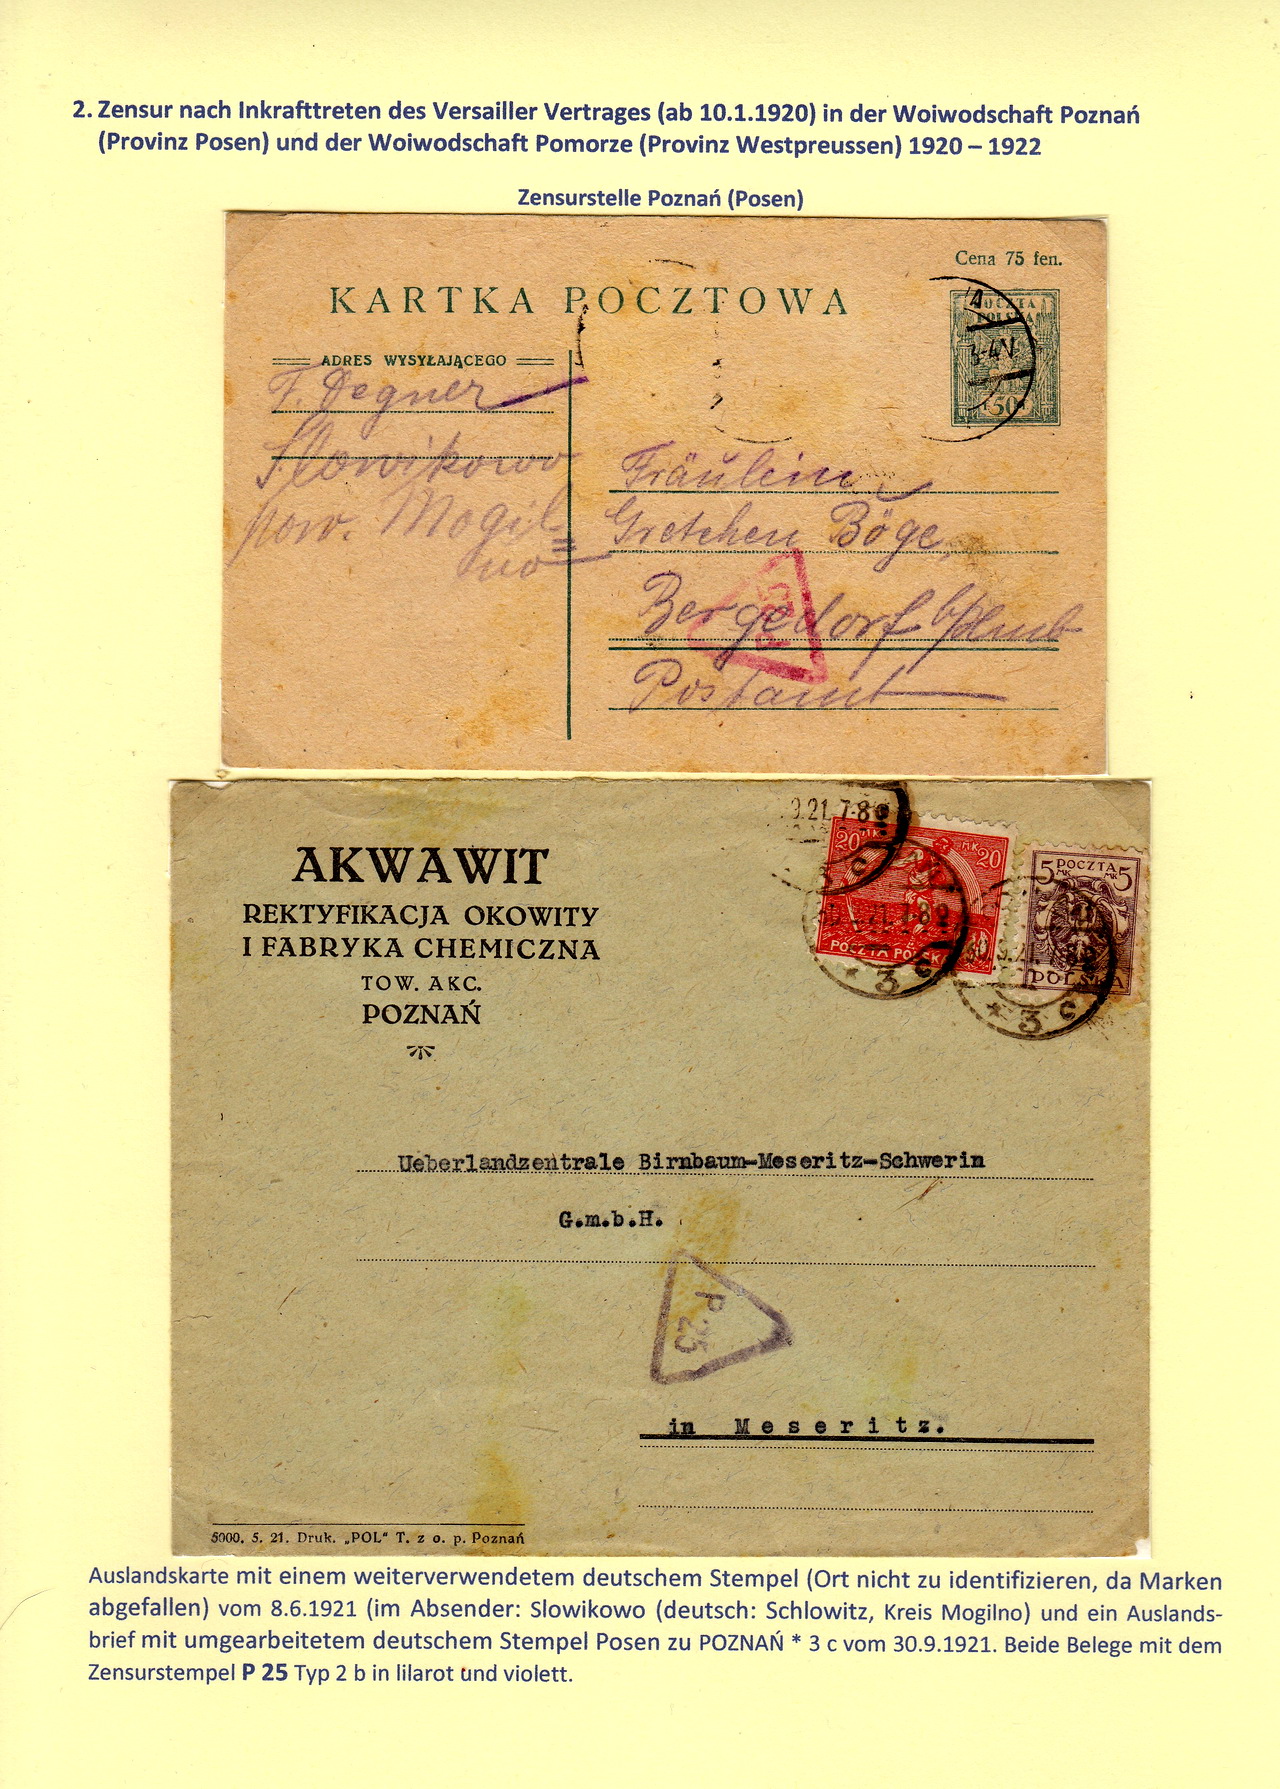 2. Zensur nach Inkrafttreten des Versailler Vertrages (ab 10.1.1920) in der Woiwodschaft Poznań
(Provinz Posen) und der Woiwodschaft Pomorze (Provinz Westpreussen) 1920 – 1922
Zensurstelle Poznań (Posen)
Cena 75 fen.
KARTKA POCZTOWA
POCZTA
POLSKA
3-4N
50
ADRES WYSYŁAJĄCEGO
F. Degner
Slowikowo
pow. Mogil=
no
Fräulein
Gretchen Böge,
Bergedorf b/Hmb
Postamt
P 25
AKWAWIT
REKTYFIKACJA OKOWITY
I FABRYKA CHEMICZNA
TOW. AKC.
POZNAŃ
9.21.7-8
20 MK MK 20
POCZTA POLSKA
* 3 c
5 POCZTA 5
MK MK
POLSKA
30.9.21.7-8
* 3 c
Ueberlandzentrale Birnbaum-Meseritz-Schwerin
G.m.b.H.
P 25
in Meseritz.
5000. 5. 21. Druk. „POL" T. z o. p. Poznań
Auslandskarte mit einem weiterverwendetem deutschem Stempel (Ort nicht zu identifizieren, da Marken
abgefallen) vom 8.6.1921 (im Absender: Slowikowo (deutsch: Schlowitz, Kreis Mogilno) und ein Auslands-
brief mit umgearbeitetem deutschem Stempel Posen zu POZNAŃ * 3 c vom 30.9.1921. Beide Belege mit dem
Zensurstempel P 25 Typ 2 b in lilarot und violett.